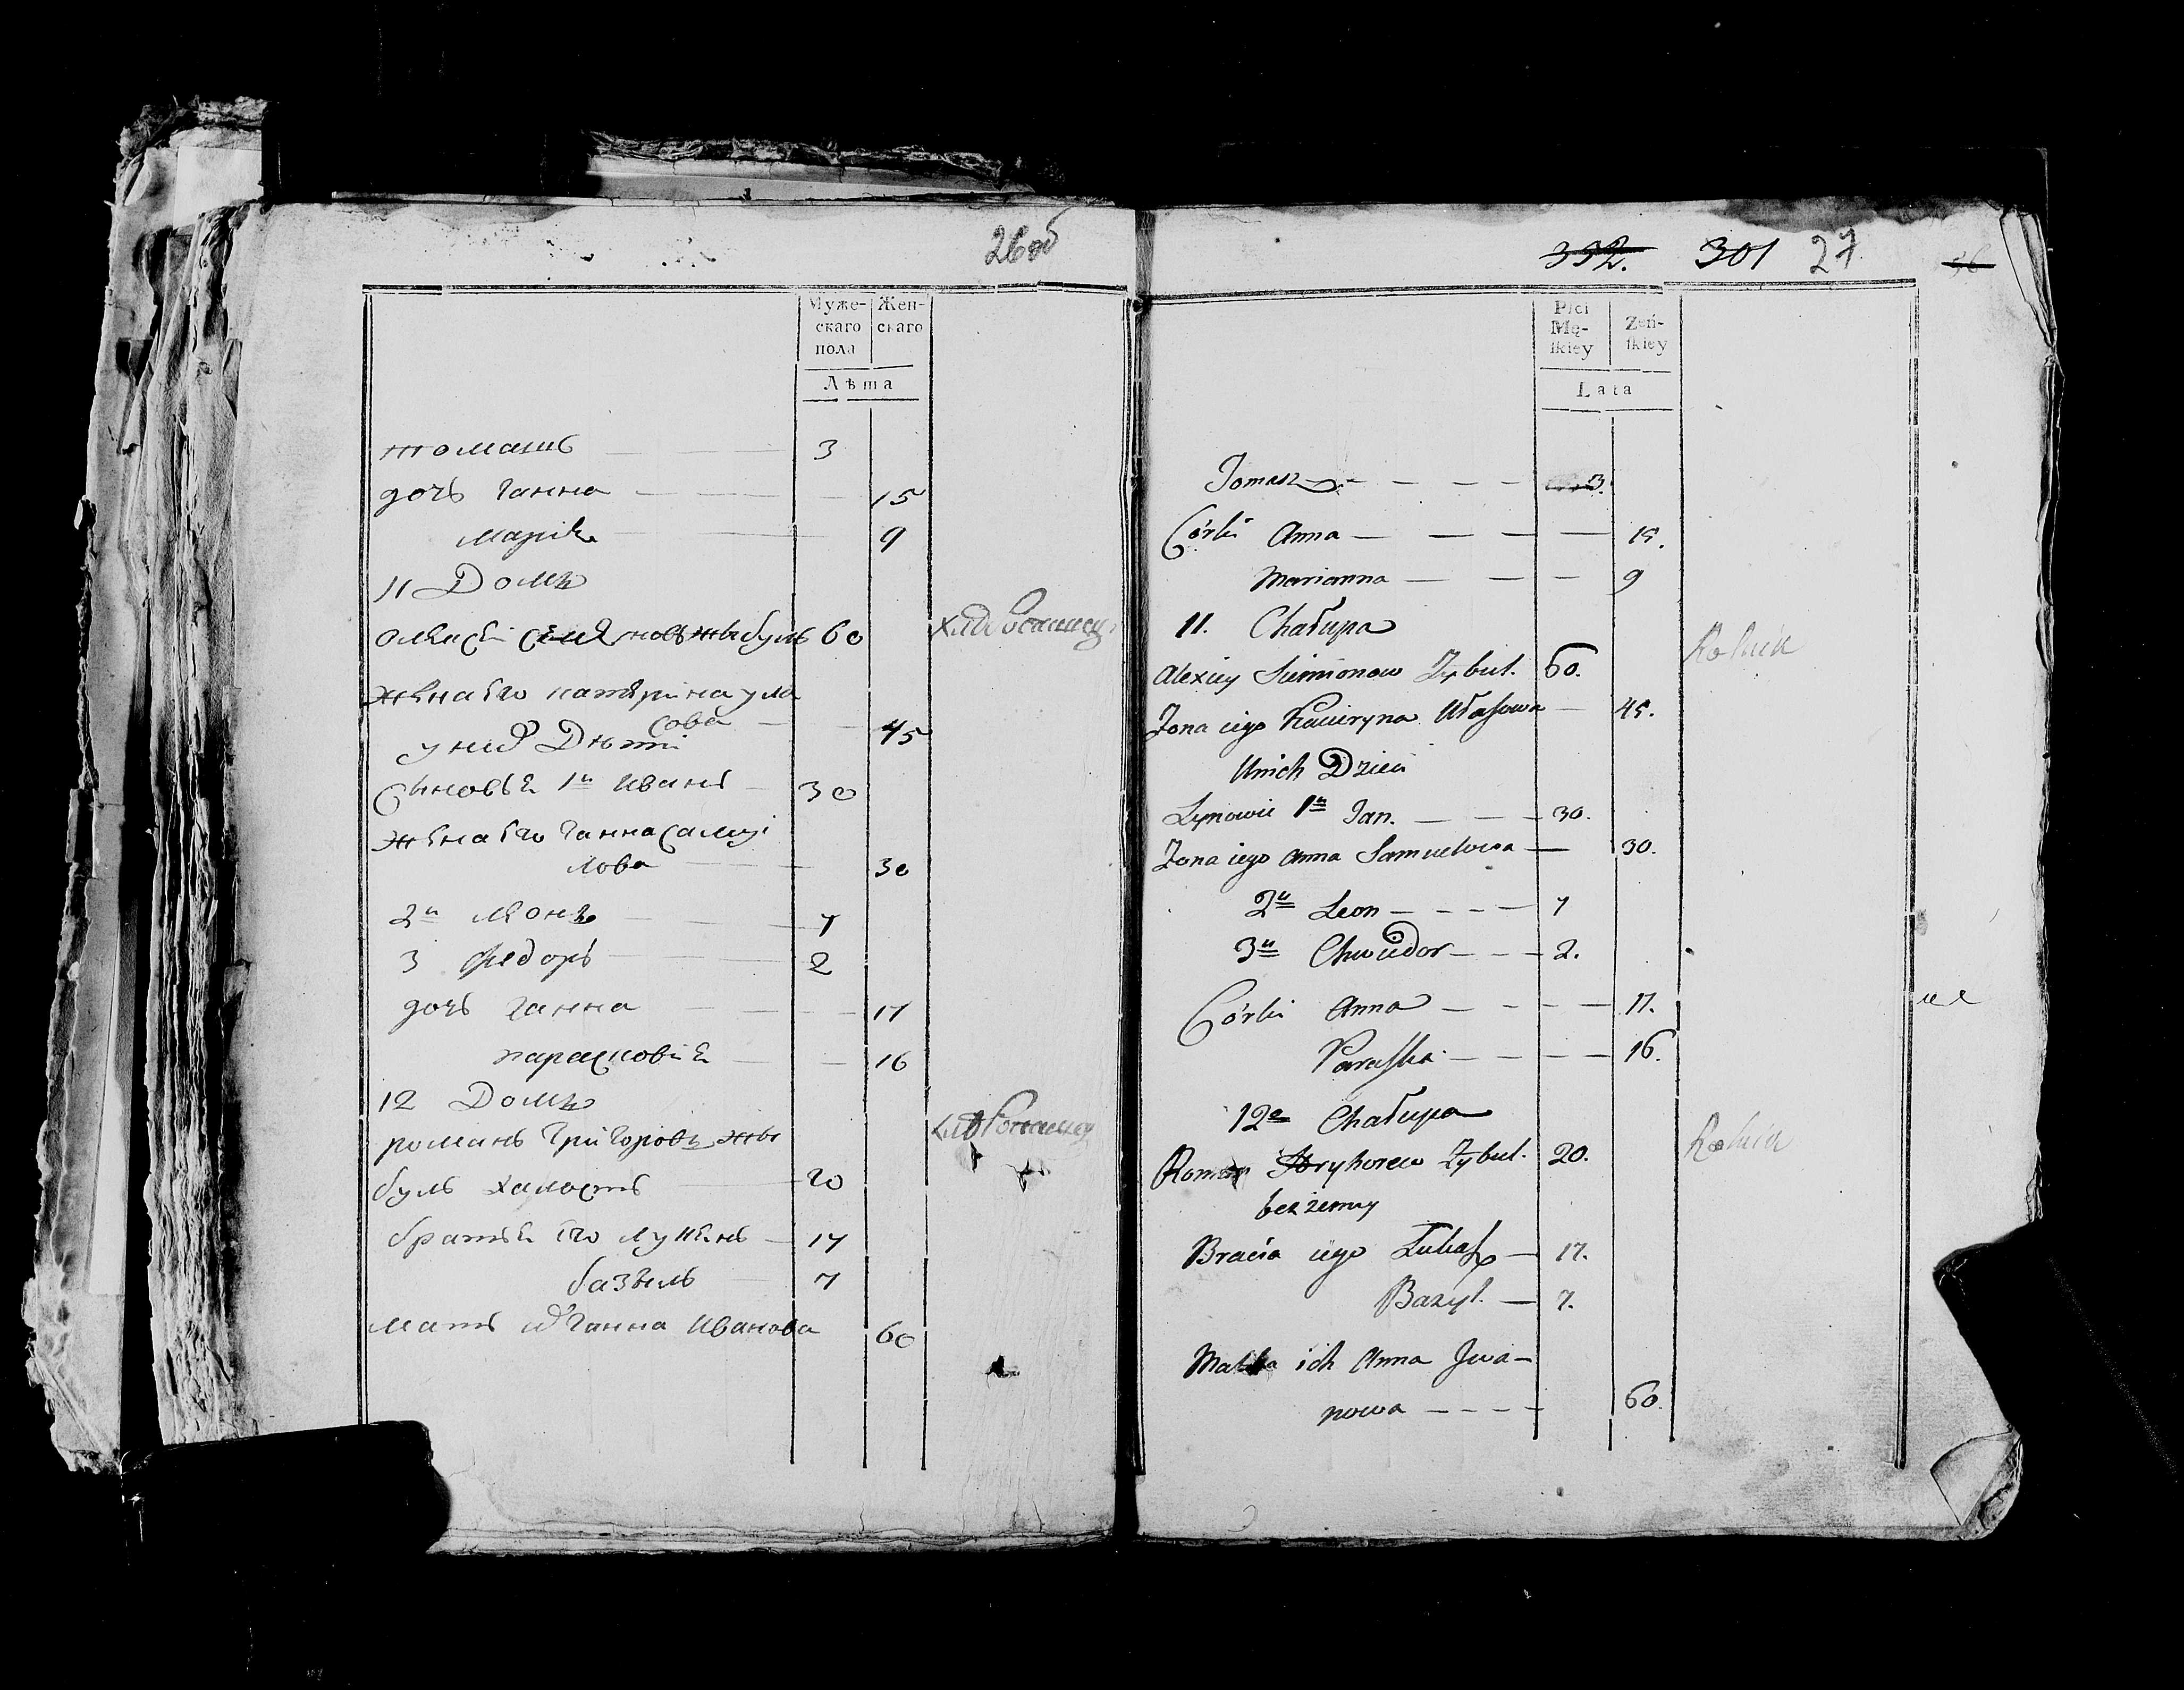 26об
Муже-
скаго
пола
Жен-
скаго
Лѣта
томашъ 3
дочь ганна 15
марія 9
11 Домъ
олексей семяновъ жыбуль 60
хлѣбопашецъ
жена его катерина ула
сова 45
у них Дѣти
Сыновья 1й иванъ 30
жена его ганна самуй
лова 30
2й леонъ 7
3 федоръ 2
дочь ганна 17
парасковія 16
12 Домъ
хлѣбопашец
романъ григоровъ жы
буль халостъ 20
братья его лукянъ 17
базыль 7
мать их ганна иванова 60
392. 301 27 36
Płci
Mę-
ſkiey
Żeń-
ſkiey
Lata
Tomasz 3.
Córki Anna 15.
Marianna 9
11. Chałupa
Rolnik
Alexiey Siemionow Zybul. 60.
Żona iego Kacieryna Ułaſowa 45.
Unich Dzieci
Synowie 1n Jan. 30.
Żona iego Anna Samuelowa 30.
2n Leon 7
3n Chwiedor 2.
Córki Anna 17.
Paraſka 16.
12a Chałupa
Rolnik
Roman Hryhorew Zybul. 20.
bezżenny
Bracia iego Łukaſz 17.
Bazyl. 7.
Matka ich Anna Jwa-
nowa 60.